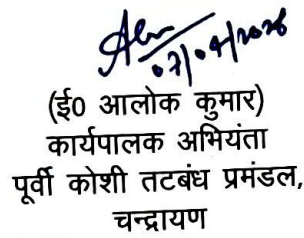 07/04/2026
(ई0 आलोक कुमार)
कार्यपालक अभियंता
पूर्वी कोशी तटबंध प्रमंडल,
चन्द्रायण